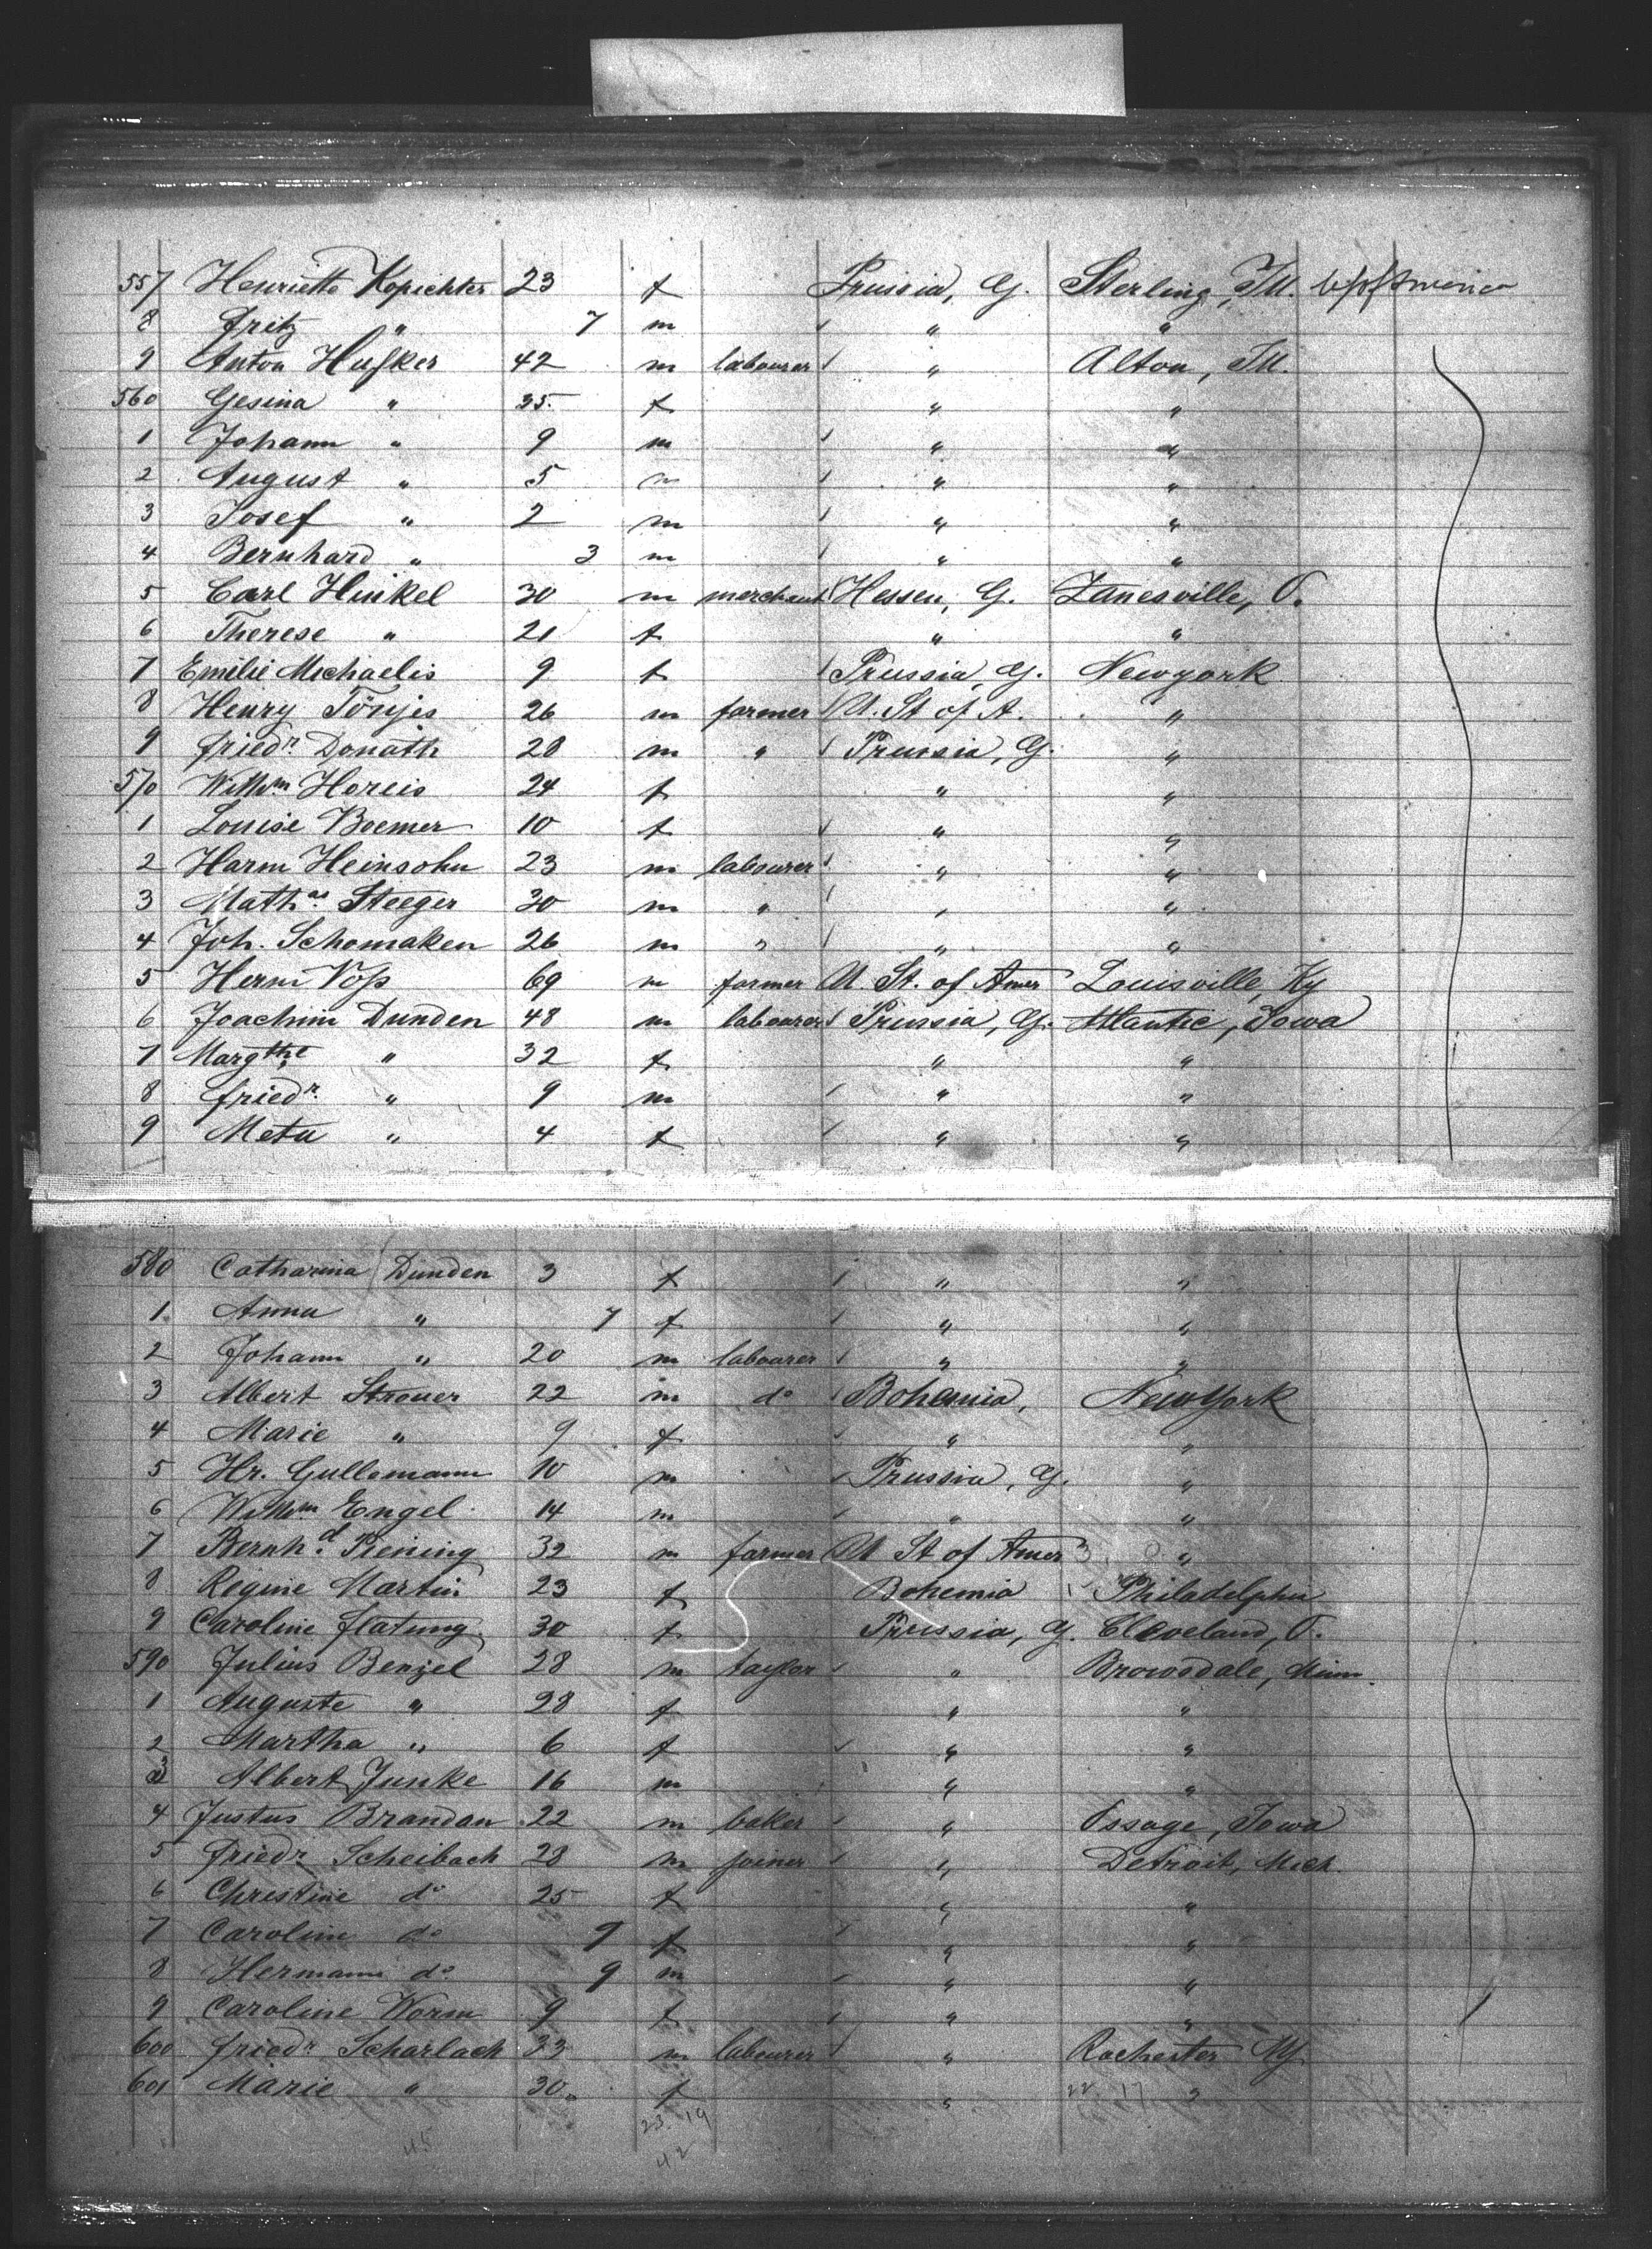 557 Henriette Kopichter 23 f Prussia, G. Sterling, Ill.
8 Fritz " 7 m " "
9 Anton Husker 42 m labourer " Alton, Ill.
560 Gesina " 35 f " "
1 Johann " 9 m " "
2 August " 5 m " "
3 Josef " 2 m " "
4 Bernhard " 3 m " "
5 Carl Hinkel 30 m merchant Hessen, G. Zanesville, O.
6 Therese " 21 f " "
7 Emilie Michaelis 9 f Prussia, G. Newyork
8 Henry Tönjes 26 m farmer U. St of A. "
9 Friedr. Donath 28 m " Prussia, G. "
570 Willhm Horeis 24 f " "
1 Louise Boemer 10 f " "
2 Harm Heinsohn 23 m labourer " "
3 Mathas Steeger 30 m " " "
4 Joh. Schomaken 26 m " " "
5 Herm Voss 69 m farmer U. St. of Amer Louisville, Ky
6 Joachim Dunden 48 m labourer Prussia, G. Atlantic, Iowa
7 Margthe " 32 f " "
8 Friedr. " 9 m " "
9 Meta " 4 f " "
580 Catharina Dunden 3 f " "
1 Anna " 7 f " "
2 Johann " 20 m labourer " "
3 Albert Strouer 22 m do Bohemia, New York
4 Marie " 9 f " "
5 Hr. Gullemann 10 m Prussia, G. "
6 Willhm Engel 14 m " "
7 Bernhd. Piening 32 m farmer U St of Amer "
8 Regine Martin 23 f Bohemia Philadelphia
9 Caroline Flatung 30 f Prussia, G. Cleveland, O.
590 Julius Benzel 28 m taylor " Browsdale, Minn.
1 Auguste " 28 f " "
2 Martha " 6 f " "
3 Albert Junke 16 m " "
4 Justus Brandan 22 m baker " Ossage, Iowa
5 Friedr. Scheibach 28 m joiner " Detroit, Mich.
6 Christine do 25 f " "
7 Carolin do 9 f " "
8 Hermann do 9 m " "
9 Caroline Worm 9 f " "
600 Friedr Scharlach 33 m labourer " Rochester NY
601 Marie " 30 f " "
22. 17
23. 19
45 42